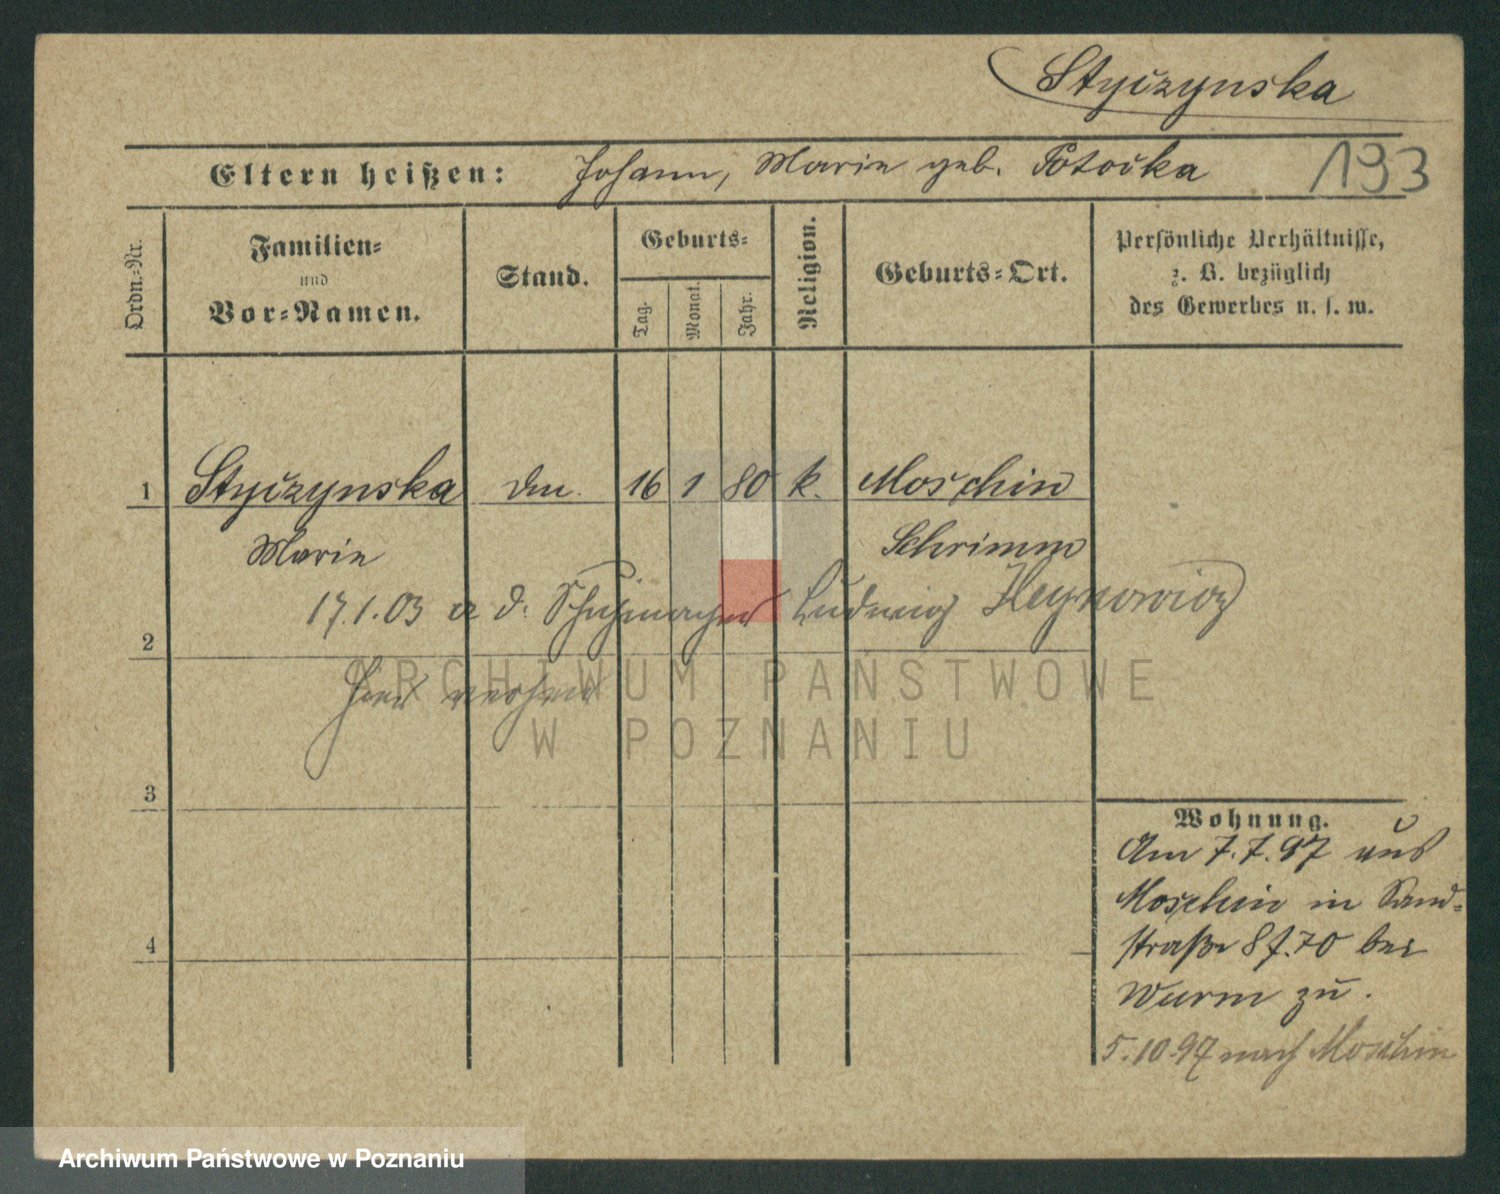 Styczynska
Eltern heißen: Johann, Marie geb. Potocka 193
Ordn.-Nr.
Familien-
und
Vor-Namen.
Stand.
Geburts-
Tag.
Monat.
Jahr.
Religion.
Geburts-Ort.
Persönliche Verhältnisse,
z. B. bezüglich
des Gewerbes u. s. w.
1 Styczynska 16 1 80 k. Moschin
Marie Schrimm
17.1.03 a. d. Schuhmacher Ludwig
2
hier
3
4
Wohnung.
Am 7.7.97 aus
Moschin in Sand-
straße 8 f. 70 bei
Wurm zu.
5.10.97 nach Moschin
ARCHIWUM PAŃSTWOWE
W POZNANIU
Archiwum Państwowe w Poznaniu